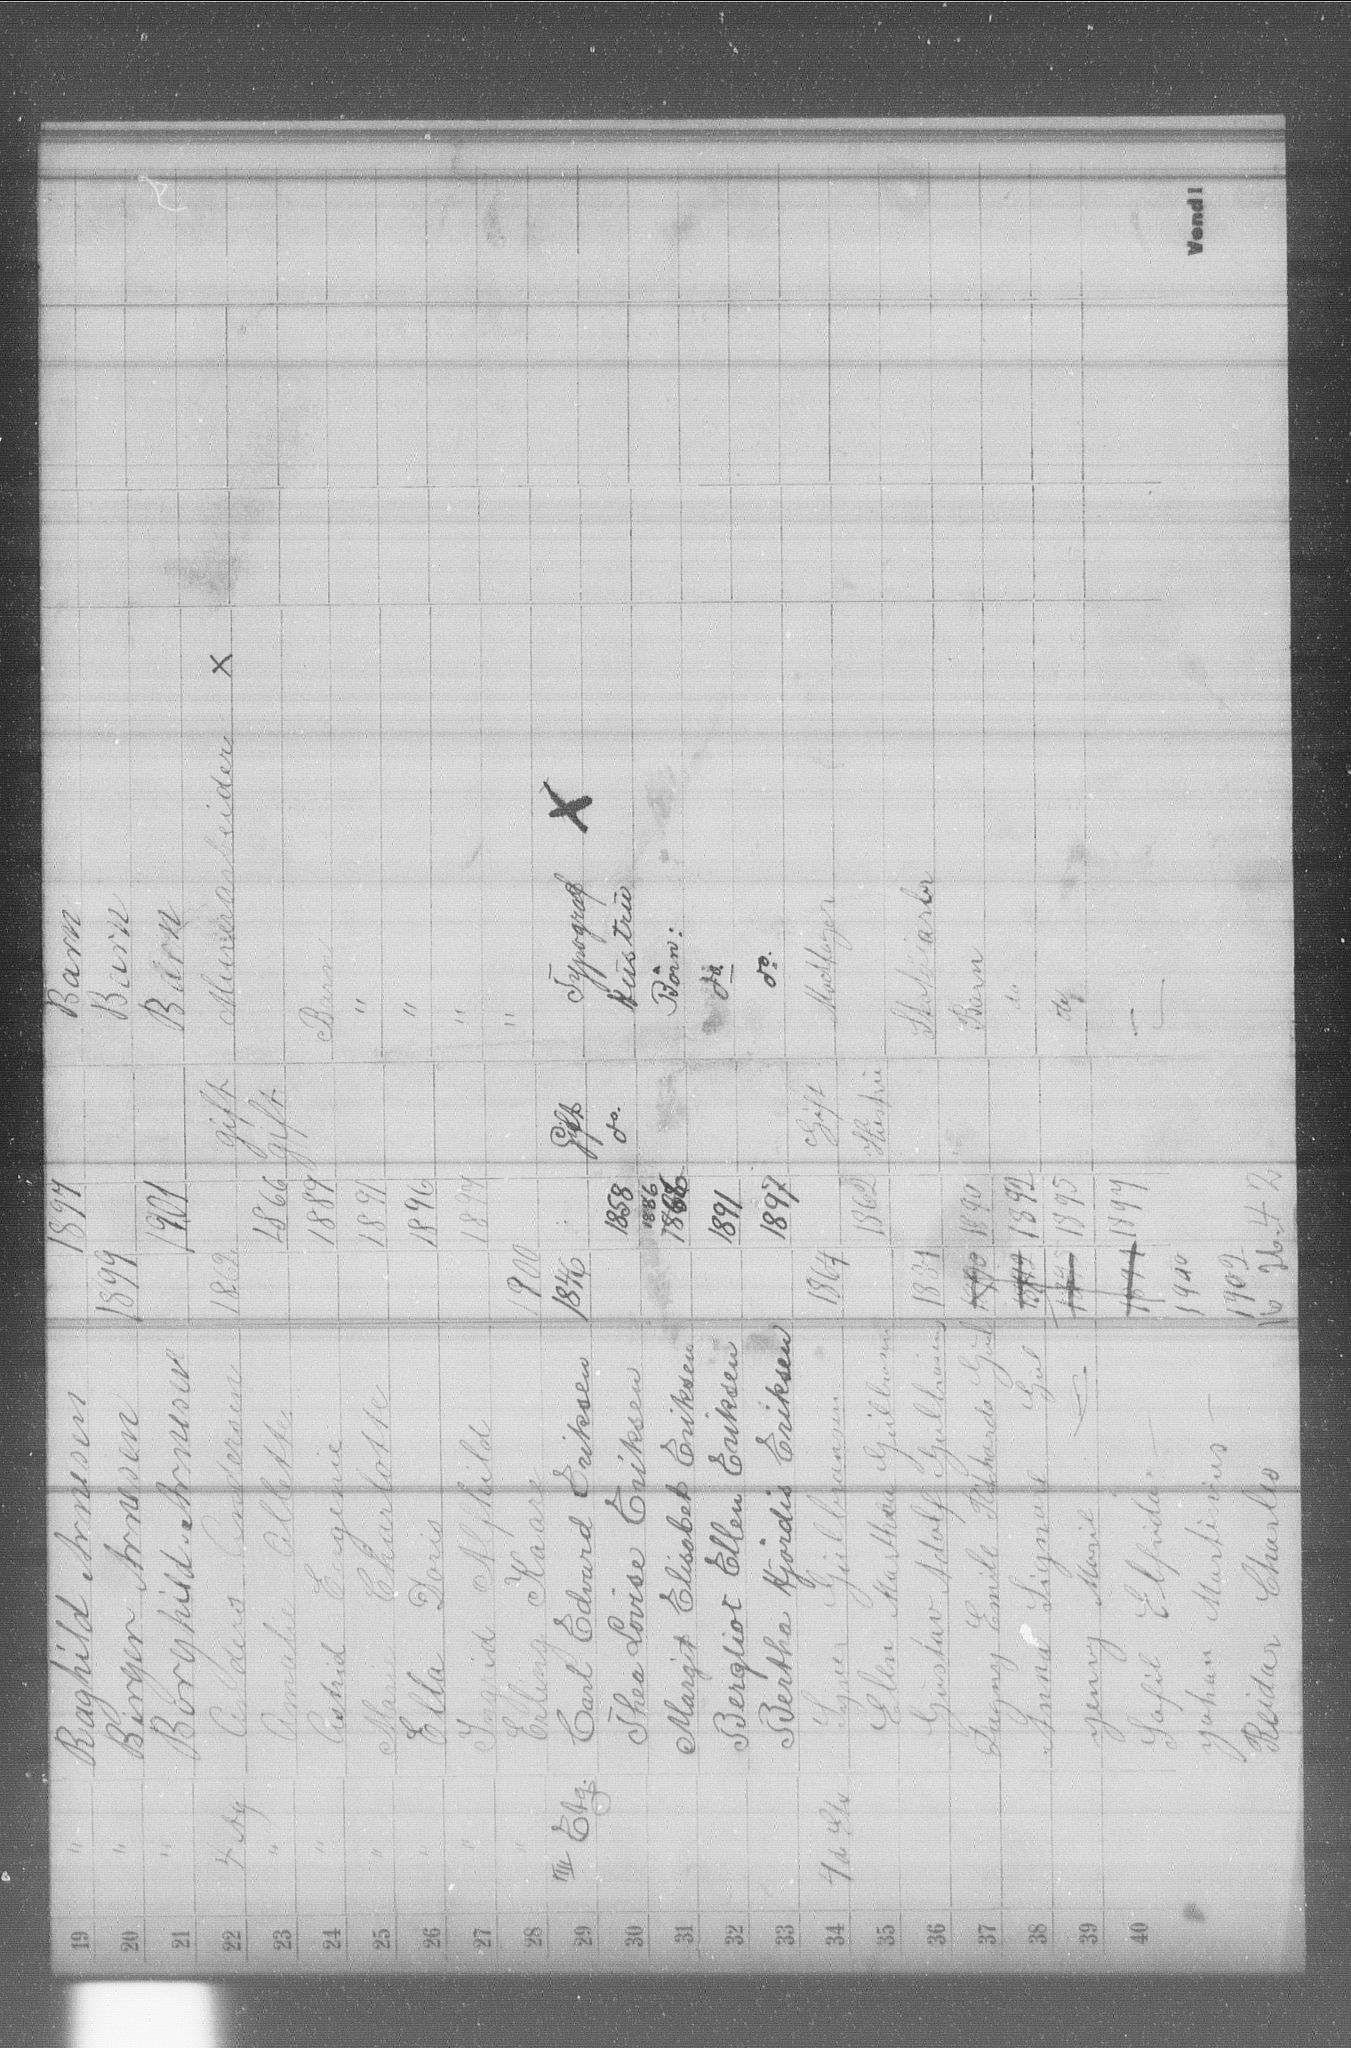 19 " Raghild Arnesen 1897 Barn
20 " Birger Arnesen 1899 Barn
21 " Borghild Arnesen 1901 Barn
22 4 Etg Anders Andersen 1862 gift Murerarbeider X
23 " Amalie Alette 1866 gift
24 " Astrid Eugenie 1889 Barn
25 " Marie Charlotte 1891 "
26 " Ella Doris 1896 "
27 " Ingrid Alfhild 1897 "
28 " Erling Kaare 1900 "
29 III Etg. Carl Edvard Eriksen 1846 Gift Typograf X
30 Thea Lovise Eriksen 1858 do. Hustru
31 Margit Elisabet Eriksen 1886 Börn:
32 Bergliot Ellen Eriksen 1891 do
33 Bertha Hjördis Eriksen 1897 do.
34 Gulbransen 1864 Gift
35 Ellen Marthea Gulbransen 1862 Hustru
36 Gustav Adolf Gulbransen
37 Emile 1890 1890 Barn
38 Anna Signora Gul 1892 "
39 Jenny Marie 1895
40 Elfrida 1897
Johan Martinius 1900
Reidar Charles 1902
16 26.42
Vend!